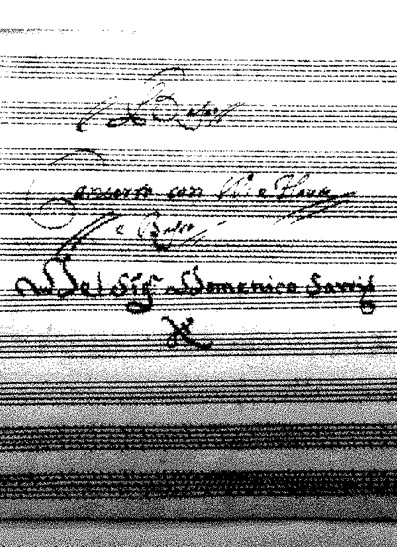 Basso
Concerto con VV: e Flauto
e Basso
Del Sig.r Domenico Sarri